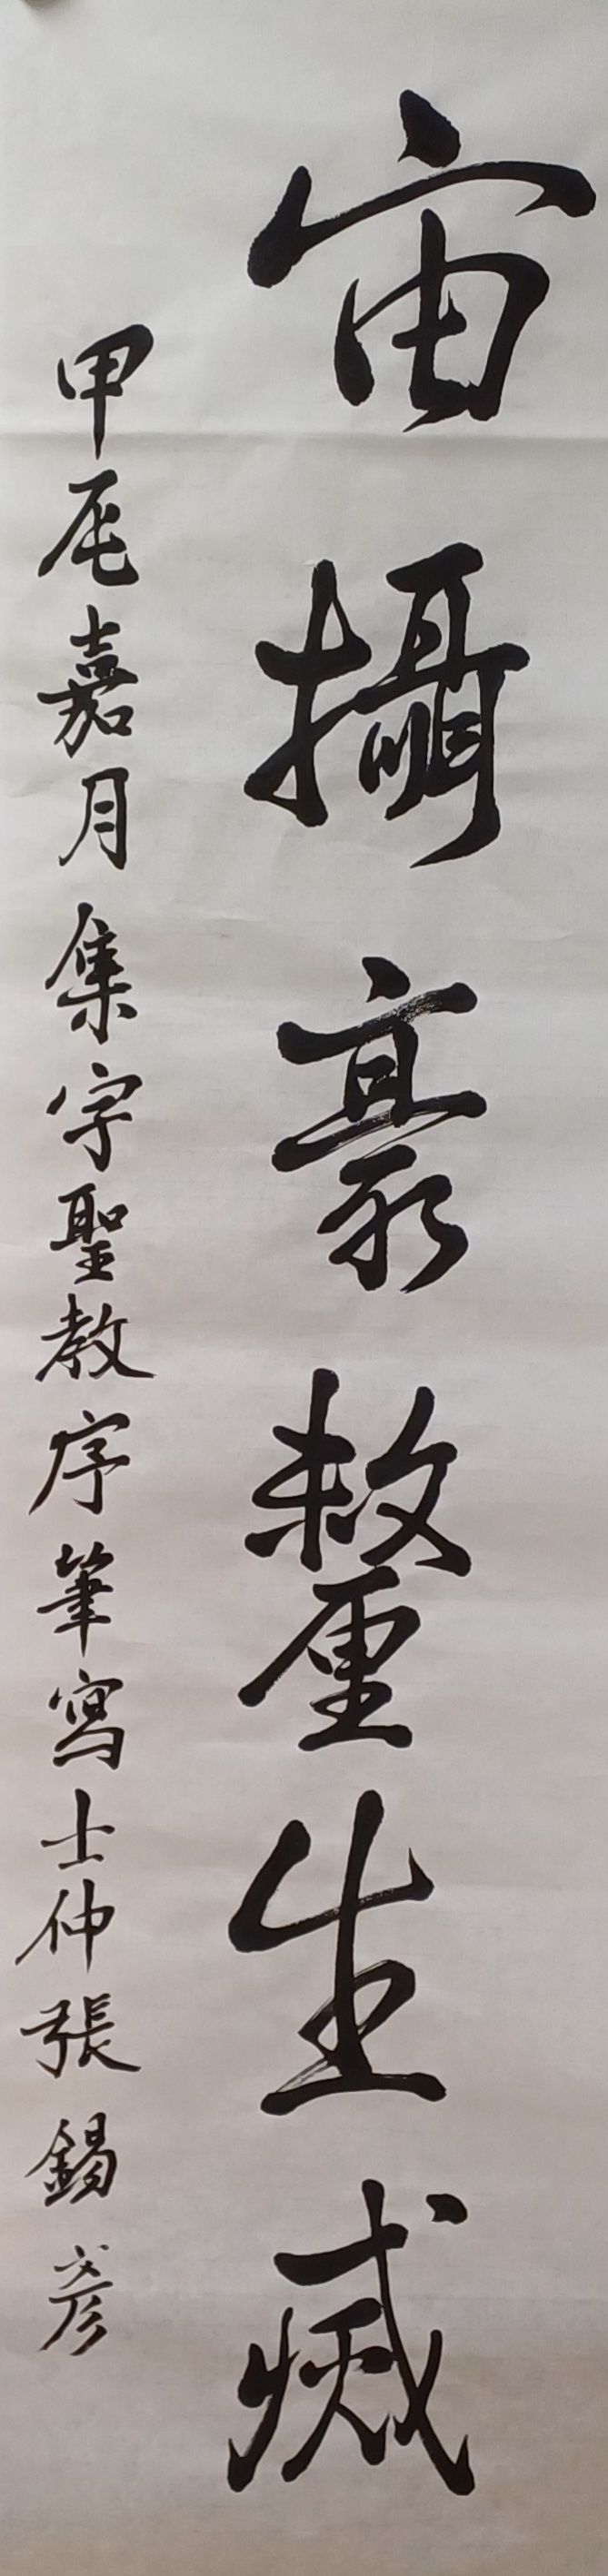 宙攝豪釐生滅
甲辰嘉月集字聖教序筆寫士仲張錫彥